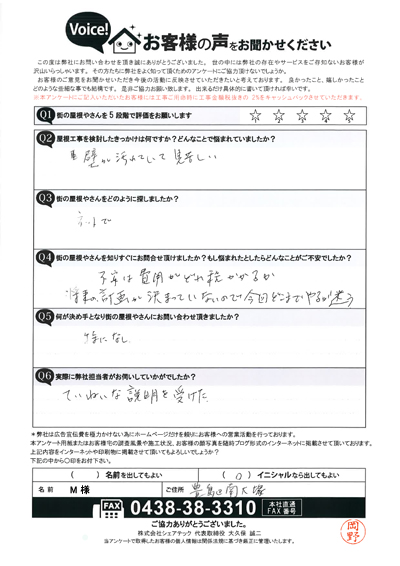 Voice!
お客様の声をお聞かせください
この度は弊社にお問い合わせを頂き誠にありがとうございました。世の中には弊社の存在やサービスをご存知ないお客様が
沢山いらっしゃいます。その方たちに弊社をよく知って頂くためのアンケートにご協力頂けないでしょうか。
お客様のご意見をお聞かせいただき今後の活動に反映させていただきたいと考えております。良かったこと、嬉しかったこと
どのような些細な事でも結構です。是非ご協力お願い致します。出来るだけ具体的に書いて頂ければ幸いです。
※本アンケートにご記入いただいたお客様には工事ご用命時に工事金額税抜きの2%をキャッシュバックさせていただきます。
Q1 街の屋根やさんを5段階で評価をお願いします ☆ ☆ ☆ ☆ ☆
Q2 屋根工事を検討したきっかけは何ですか?どんなことで悩まれていましたか?
壁が汚れていて見苦しい
Q3 街の屋根やさんをどのように探しましたか?
ネットで
Q4 街の屋根やさんを知りすぐにお問合せ頂けましたか?もし悩まれたとしたらどんなことがご不安でしたか?
不安は費用がどれ程かかるか
将来の計画が決まっていないので今回どこまでやるか迷う
Q5 何が決め手となり街の屋根やさんにお問い合わせ頂きましたか?
特になし
Q6 実際に弊社担当者がお伺いしていかがでしたか?
ていねいな説明を受けた
*弊社は広告宣伝費を極力かけない為にホームページだけを頼りにお客様への営業活動を行っております。
本アンケート用紙またはお客様宅の調査風景や施工状況、お客様の顔写真を随時ブログ形式のインターネットに掲載させて頂いております。
上記内容をインターネットや印刷物に掲載させて頂いてもよろしいでしょうか?
下記の中から〇印をお付け下さい。
( )名前を出してもよい ( 〇 )イニシャルなら出してもよい
名前 M様 ご住所 豊島区南大塚
FAX 0438-38-3310 本社直通 FAX番号
ご協力ありがとうございました。
株式会社シェアテック 代表取締役 大久保 誠二
当アンケートで取得したお客様の個人情報は関係法規に基づき厳正に管理いたします。
岡野